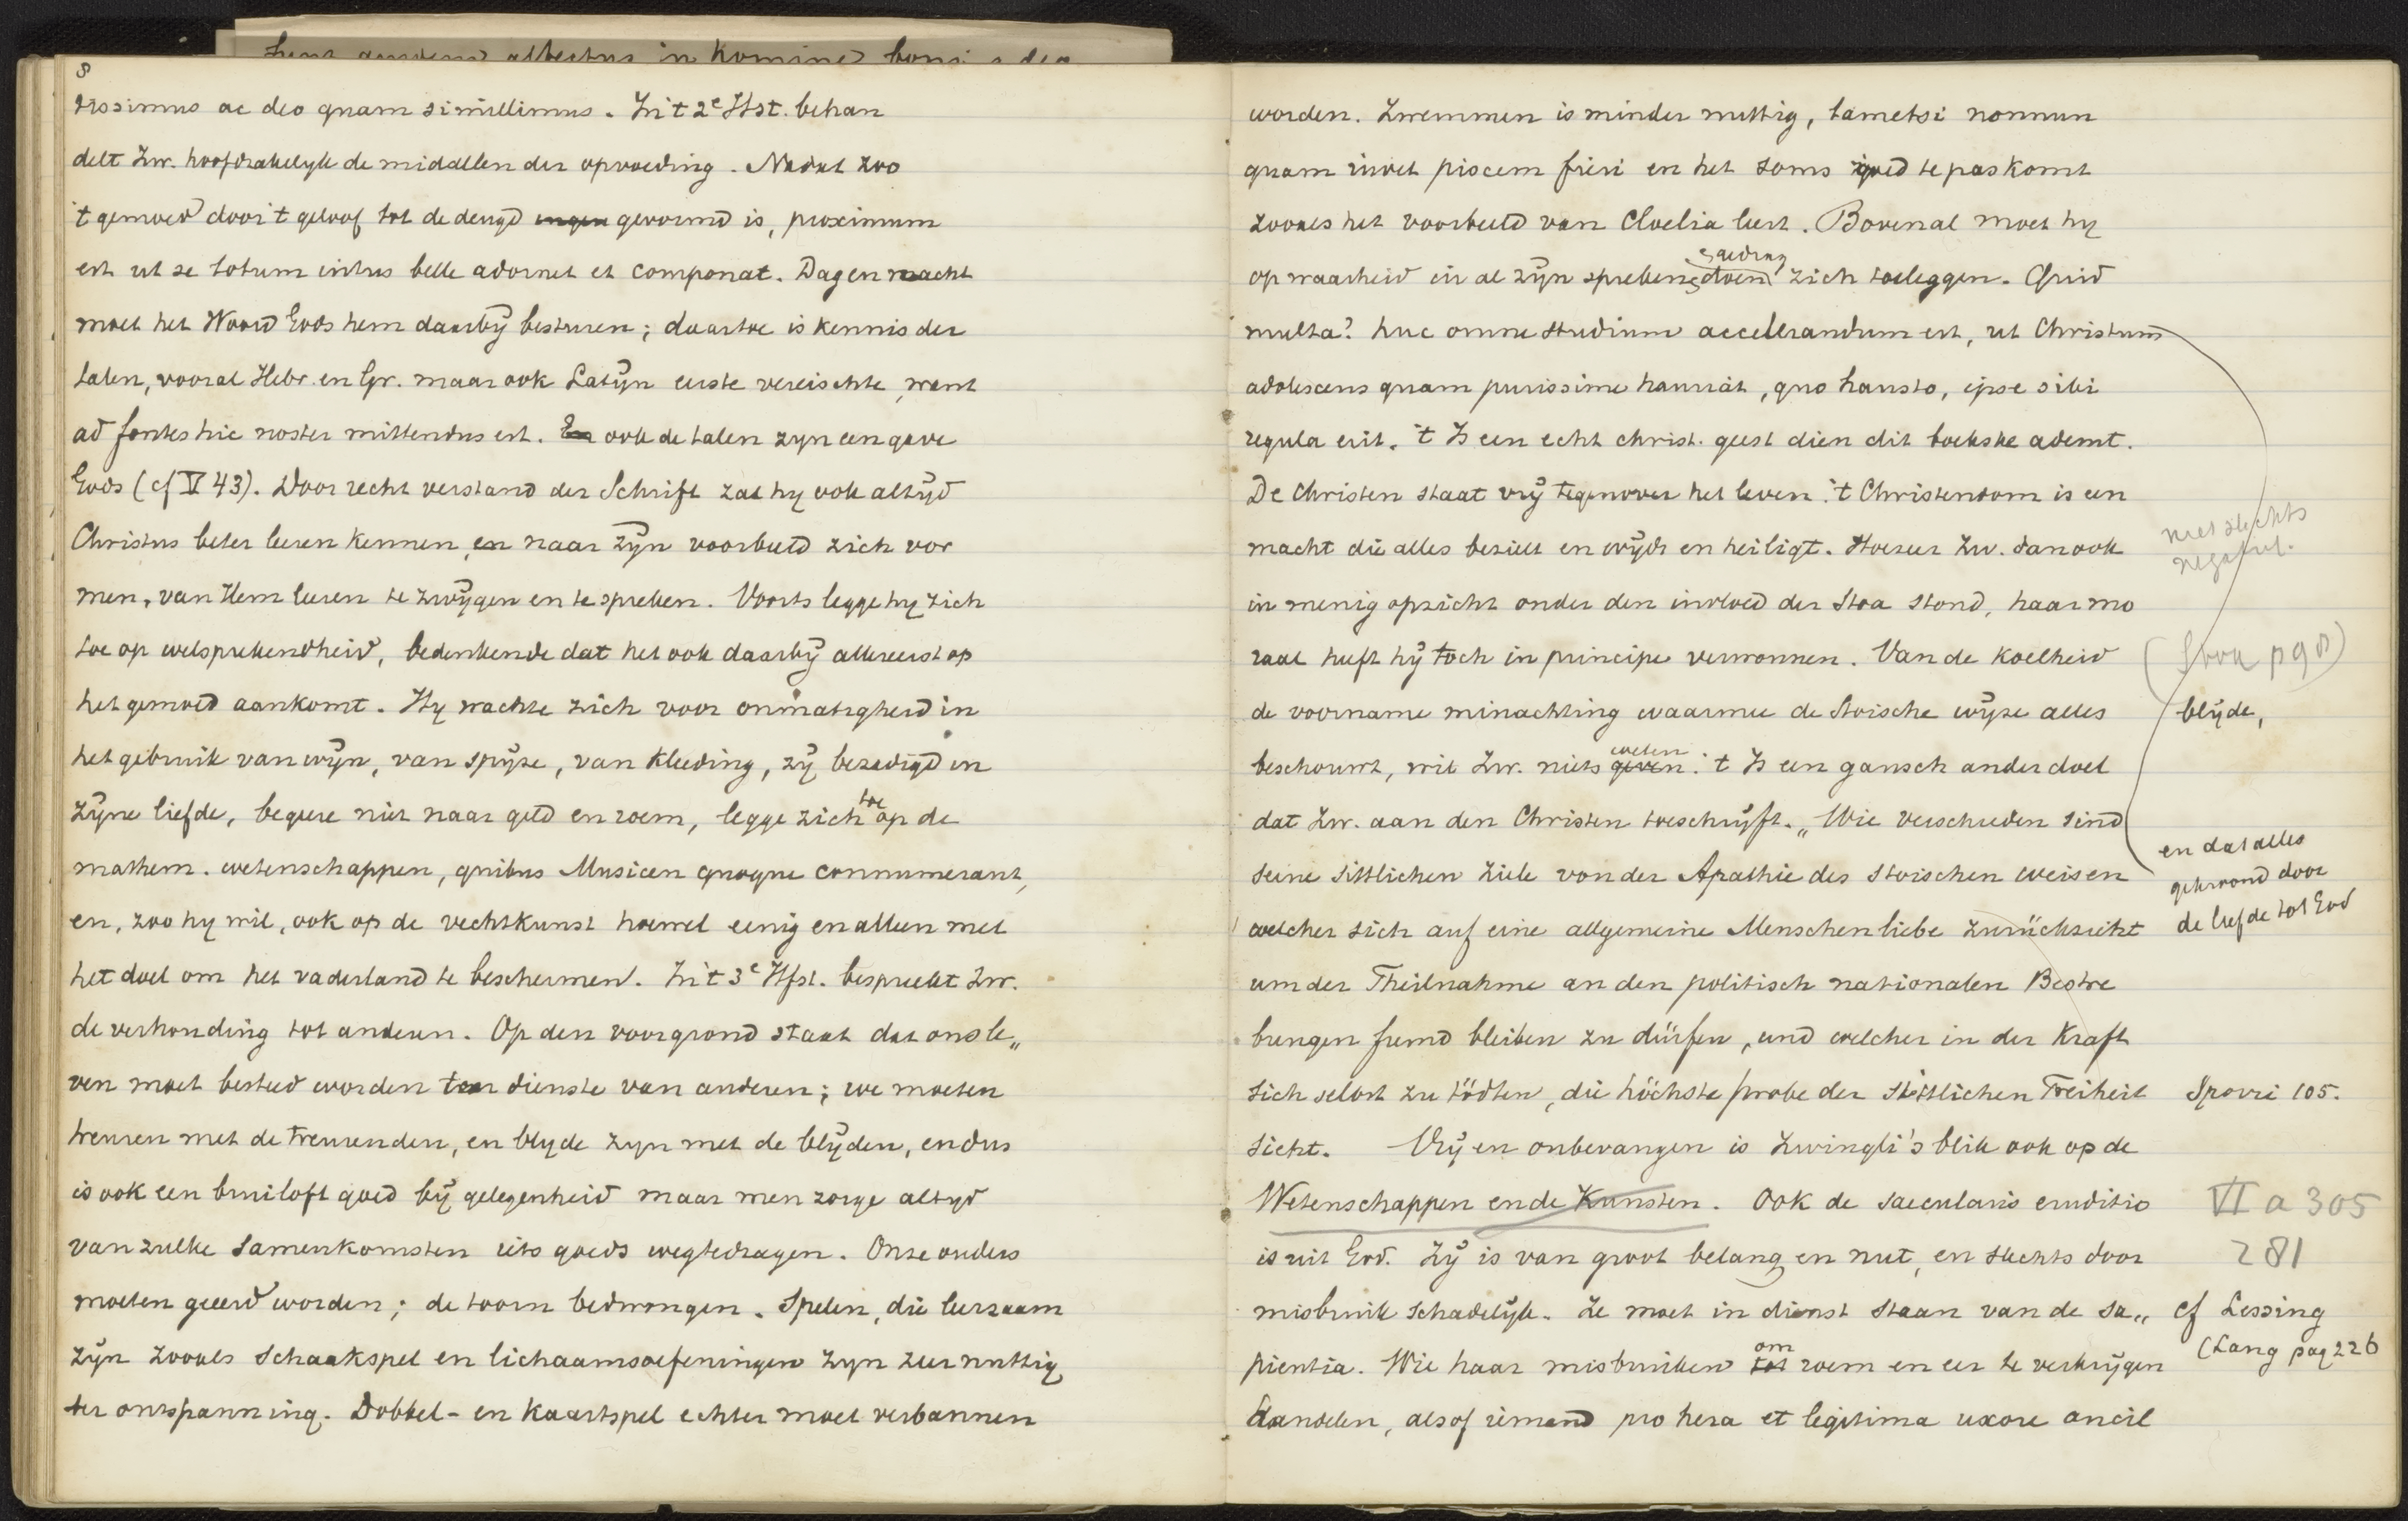 8
dissimus ac deo quam simillimus. In 't 2e Hst. behan
delt Zw. hoofdzakelyk de middelen der opvoeding. Nadat zoo
't gemoed door 't geloof tot de deugd ingen gevormd is, proximum
est ut se totum intus belle adornet et componat. Dag en nacht
moet het Woord Gods hem daarbij besturen; daartoe is kennis der
talen, vooral Hebr. en Gr. maar ook Latijn eerste vereischte, want
ad fontes hic noster mittendus est. En ook de talen zyn een gave
Gods (cf V 43). Door recht verstand der Schrift zal hy ook altijd
Christus beter leeren kennen, en naar zijn voorbeeld zich vor
men, van Hem leeren te zwijgen en te spreken. Voorts legge hy zich
toe op welsprekendheid, bedenkende dat het ook daarbij allereerst op
het gemoed aankomt. Hy wachte zich voor onmatigheid in
het gebruik van wijn, van spijze, van kleeding, zij bezadigd in
zijne liefde, begeere niet naar geld en roem, legge zich toe op de
mathem. wetenschappen, quibus Musicen quoque connumerant,
en, zoo hy wil, ook op de vechtkunst hoewel eenig en alleen met
het doel om het vaderland te beschermen. In 't 3e Hfst. bespreekt Zw.
de verhouding tot anderen. Op den voorgrond staat dat ons le„
ven moet besteed worden ten dienste van anderen; we moeten
treuren met de treurenden, en blyde zyn met de blijden, en dus
is ook een bruiloft goed bij gelegenheid maar men zorge altyd
van zulke samenkomsten iets goeds wegtedragen. Onze ouders
moeten geeerd worden; de toorn bedwongen. Spelen, die leerzaam
zijn zooals schaakspel en lichaamsoefeningen zyn zeer nuttig
ter ontspanning. Dobbel- en kaartspel echter moet verbannen
worden. Zwemmen is minder nuttig, tametsi nonnun
quam iuvet piscem fieri en het soms goed te pas komt
zooals het voorbeeld van Cloelia leert. Bovenal moet hy
op waarheid in al zijn spreken & doen gedrag zich toeleggen. Quid
multa? huc omne studium accelerandum est, ut Christum
adolescens quam purissime hauriat, quo hausto, ipse sibi
regula erit. 't Is een echt christ. geest dien dit boekske ademt.
De Christen staat vrij tegenover het leven. 't Christendom is een
macht die alles bezielt en wijdt en heiligt. Hoezeer Zw. dan ook
niet slechts
negatief.
in menig opzicht onder den invloed der Stoa stond, haar mo
raal heeft hij toch in principe verwonnen. Van de koelheid
(Stoa p 98)
de voorname minachting waarmee de Stoische wijze alles
blijde,
beschouwt, wil Zw. niets geven weten. 't Is een gansch ander doel
dat Zw. aan den Christen toeschrijft. „Wie verschieden sind
en dat alles
gekroond door
de liefde tot God
seine sittlichen Ziele von der Apathie des Stoischen weisen
welcher sich auf eine allgemeine Menschenliebe zurückzieht
um der Theilnahme an den politisch nationalen Bestre
bungen fremd bleiben zu dürfen, und welcher in der Kraft
sich selbst zu tödten, die höchste Probe der sittlichen Freiheit
Spörri 105.
sieht. Vrij en onbevangen is Zwingli's blik ook op de
Wetenschappen en de Kunsten. Ook de saecularis eruditio
VI a 305
is uit God. Zij is van groot belang en nut, en slechts door
281
misbruik schadelijk. Ze moet in dienst staan van de sa„
cf Lessing
(Lang pag 226
pientia. Wie haar misbruiken tot om roem en eer te verkrijgen
handelen, alsof iemand pro hera et legitima uxore ancil